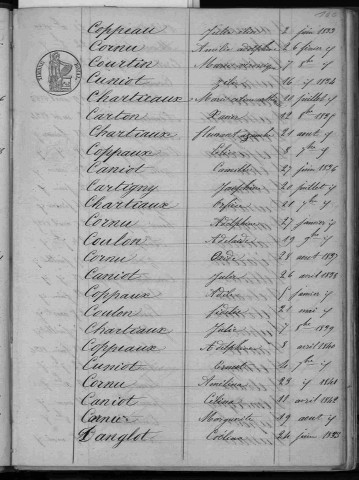 Coppeau Jules 2 juin 1833
Cornu Amélie Adolphine 26 février y
Courtin Marie 7 8bre y
Cuniot Zélie 16 y 1834
Chartiaux Marie 10 juillet y
Carton Xavier 12 8bre 1835
Chartiaux Florent 21 aout y
Coppaux Célina 8 7bre y
Caniot Camille 27 juin 1836
Cartigny Joséphine 20 juillet y
Chartiaux 10 7bre y
Cornu Adolphine 27 janvier y
Coulon Adelaïde 19 9bre y
Cornu 28 aout 1837
Caniot Jules 26 avril 1838
Coppaux Adèle 5 janvier y
Coulon 21 mai y
Chartiaux Julie 7 8bre 1839
Coppeaux Adelphine 3 avril 1840
Cuniot Ernest 4 7bre y
Cornu Amelina 23 y 1841
Caniot Célina 11 avril 1842
Cornu Marguerite 19 aout y
Danglot 24 juin 1833